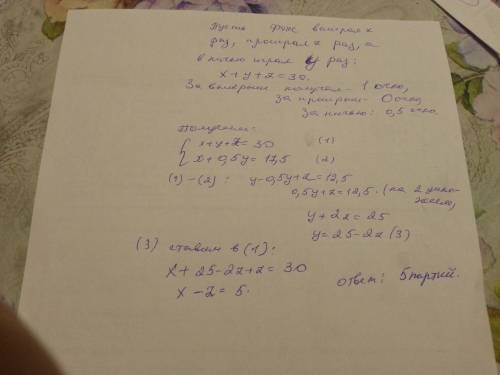 Пусть Фокс выиграл x
раз, проиграл z раз, а
в ничью играл y раз:
x+y+z=30.
За выигрыш получал - 1 очко,
за проигрыш - 0 очков,
за ничью: 0,5 очка.
Получаем:
{ x+y+z=30 (1)
x+0,5y=17,5 (2)
(1)-(2): y-0,5y+z=12,5
0,5y+z=12,5. (на 2 умно-
жаем)
y+2z=25
y=25-2z (3)
(3) ставим в (1):
x+25-2z+z=30
x-z=5.
ответ: 5 партий.